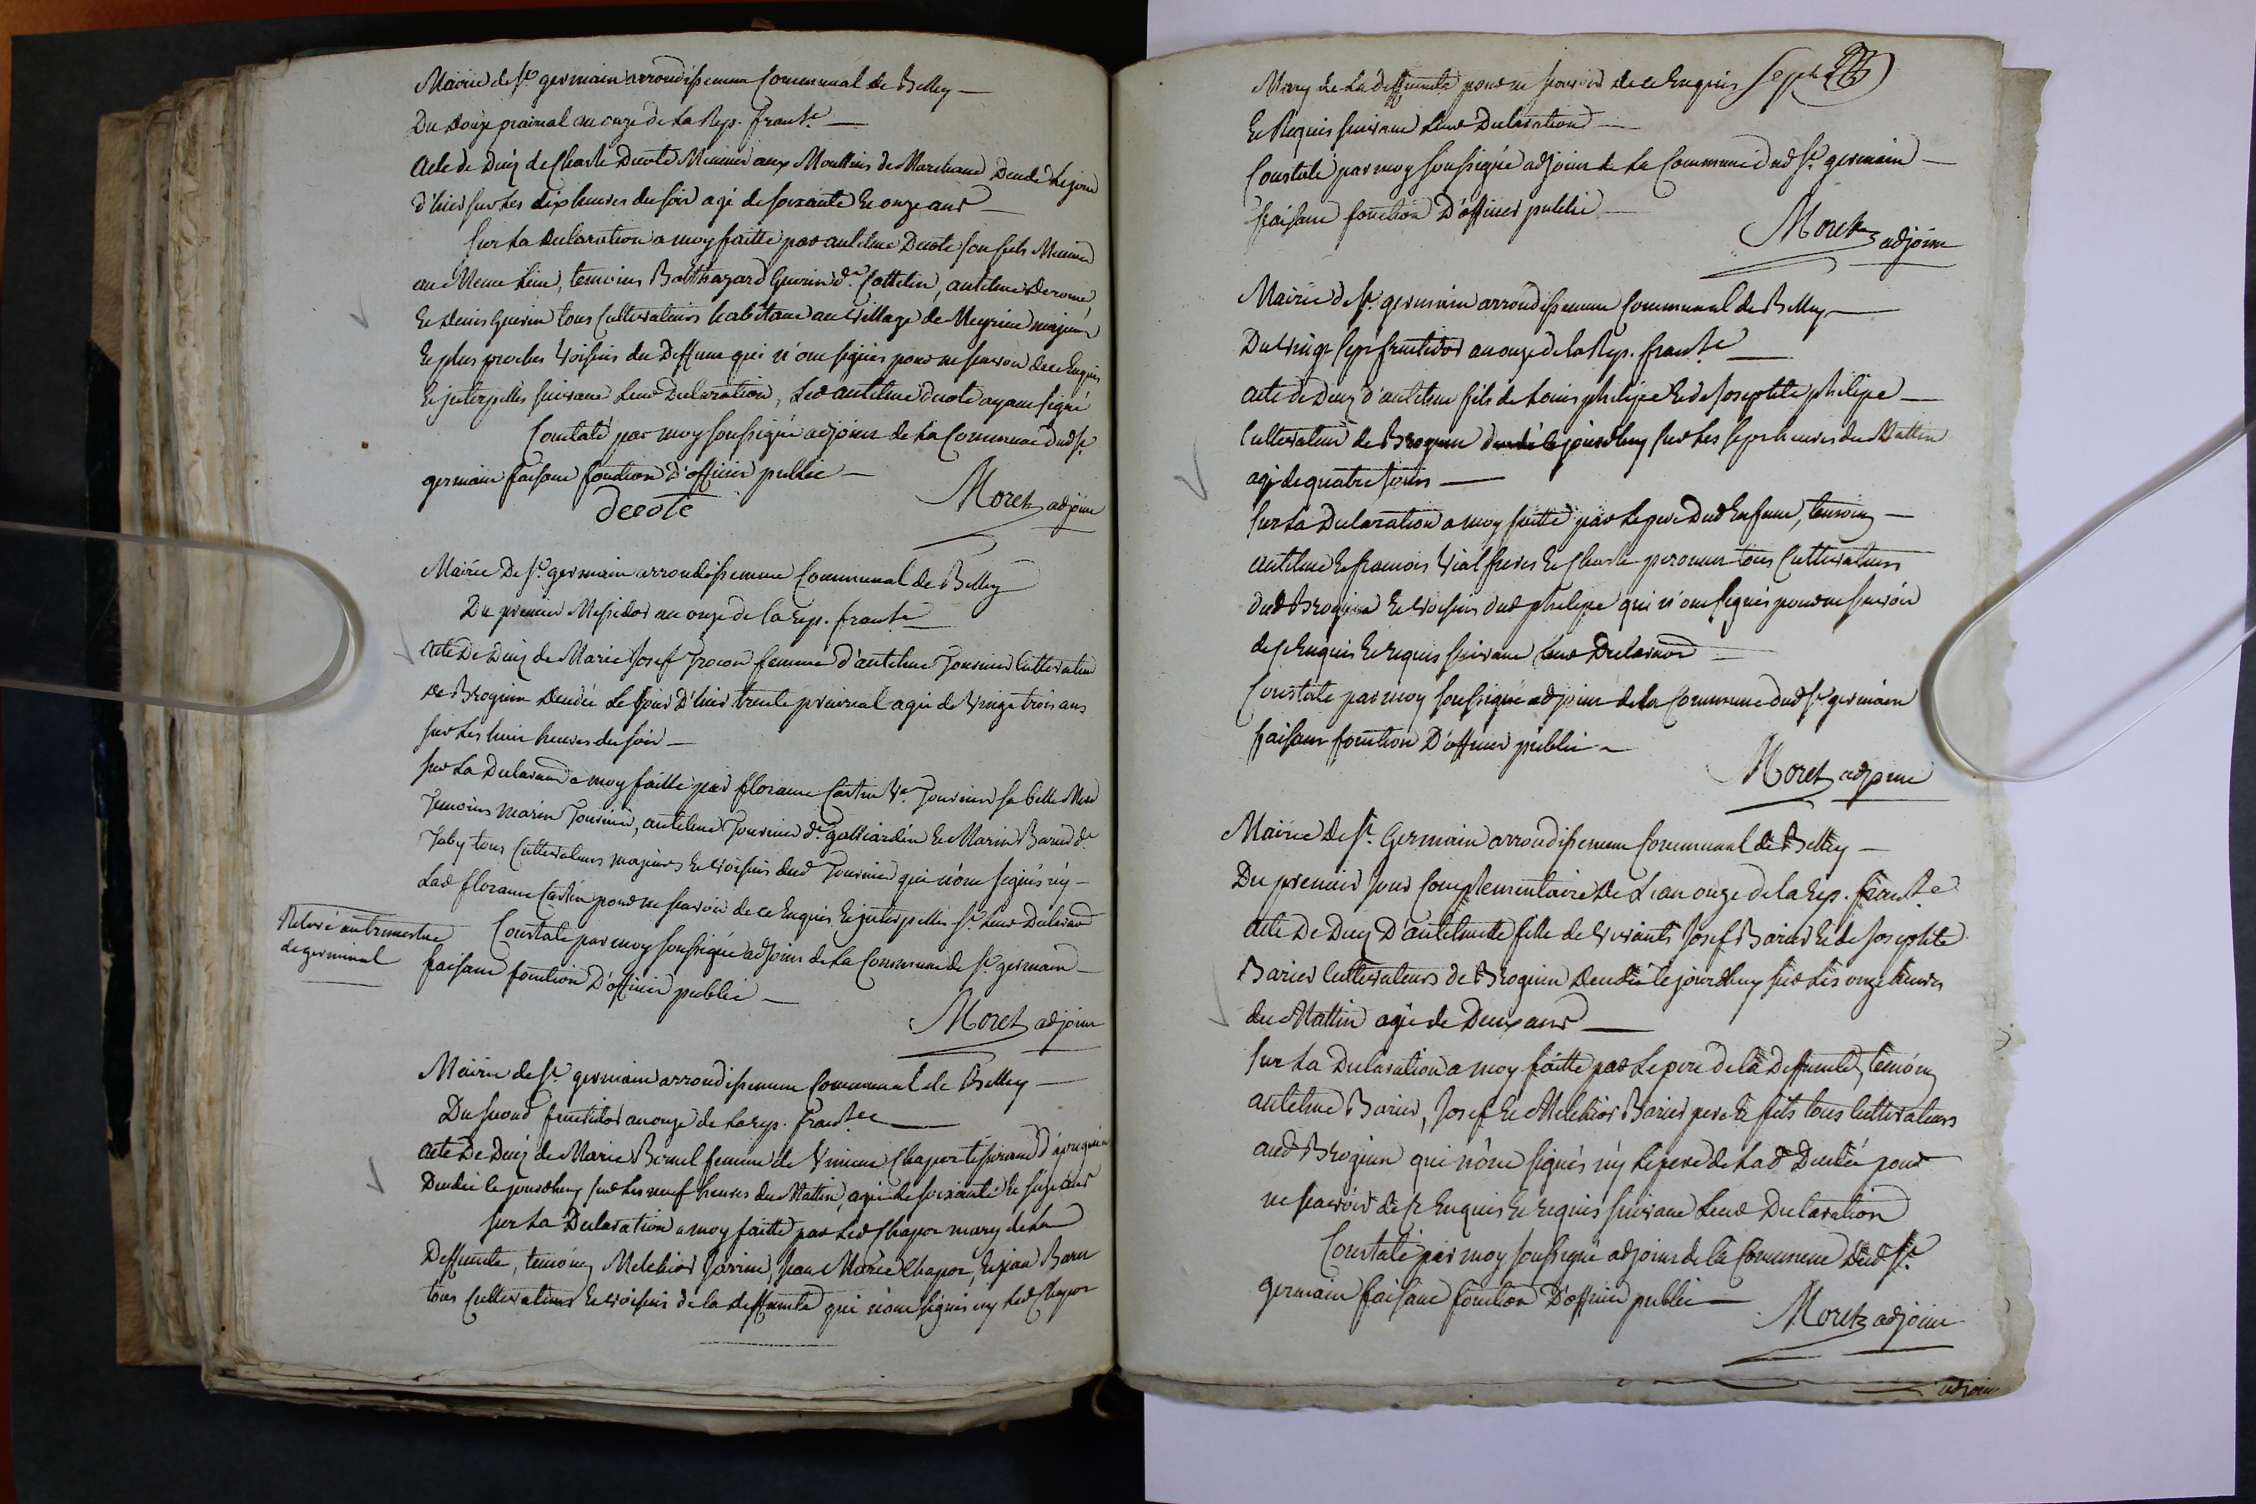 Mairie de St germain arrondissement Communal de Belley
Du douze prairial an onze de La Rep. franse
Acte de Deces de Charle Decote Meunier aux Moullins de Marchand Decedé Le jour
d'hier sur Les dix heures du soir agé de soixante Et onze ans
Sur La Declaration a moy faitte par antelme Decote son fils Meunier
au Meme Lieu, temoins Balthazard Guerin dt Cottelin, antelme Derome
Et Denis Guerin tous Cultivateurs habitant au village de Meyrieu majeurs
Et plus proches voisins du Deffunt qui n'ont signés pour ne scavoir de ce Enquis
Et interpellés suivant Leur Declaration, Led antelme decote ayant signé
Constaté par moy soussigné adjoint de La Commune dud St
germain faisant fonction d'officier public
decote Moret adjoint
Mairie De St germain arrondissement Communal de Belley
Du premier Messidor an onze de la Rep. franse
Acte De Deces de Marie Josef femme d'antelme Tournier Cultivateur
de Brognin Decedée Le jour D'hier trente prairial agée de vingt trois ans
sur Les huit heures du soir
sur La Declaration a moy faitte par florance Castin Ve Tournier sa belle Mere
Temoins Marin Tournier, antelme Tournier dt galliardin Et Marin Barud dt
Taby tous Cultivateurs majeurs Et voisins dud Tournier qui n'ont signés ny
Lad florance Castin pour ne scavoir de ce Enquis Et interpellés st Leur Declaraon
Relevé au trimestre
de germinal
Constate par moy soussigné adjoint de La Commune de St germain
faisant fonction D'officier public
Moret adjoint
Mairie de St germain arrondissement Communal de Belley
Du second fructidor an onze de La rep. franse
Acte De Deces de Marie femme de Vincent Chapot tisserand d'apregnin
Decedée le jourdhuy sur Les neuf heures du Mattin, agée de soixante Et seize ans
sur La Declaration a moy faitte par Led Chapot mary de La
Deffunte, temoins Melchior Jarrin, Jean Marie Chapot, Et jean
tous Cultivateurs Et voisins de la deffunte qui n'ont signés ny Led Chapot
Mary de La deffunte pour ne scavoir de ce Enquis
Et Requis suivant Leur Declaration
Constaté par moy soussigné adjoint de La Commune dud St germain
faisant fonction D'officier public
Moret adjoint
Mairie de St germain arrondissement Communal de Belley
Du vingt sept fructidor an onze de la Rep. franse
acte de Deces d'antelme fils de Louis philipe Et de Josephte philipe
Cultivateur de Brognin decedé le jourdhuy sur Les sept heures du Mattin
agé de quatre jours
sur La Declaration a moy faitte par Le pere Dud Enfant, temoins
antelme Et francois Vial freres Et Charle peronnet tous Cultivateurs
dud Brognin Et voisins dud philipe qui n'ont signés pour ne scavoir
de ce Enquis Et requis suivant Leur Declaraon
Constate par moy soussigné adjoint de la Commune dud St germain
faisant fonction D'officier public
Moret adjoint
Mairie de St Germain arrondissement Communal de Belley
Du premier Jour Complementaire de L'an onze de la Rep. franse
Acte De Deces D'antelmette fille de vivants Josef Barier Et de Josephte
Barier Cultivateurs de Brognin Decedée le jourdhuy sur Les onze heures
du Mattin agée de Deux ans
sur La Declaration a moy faitte par Le pere de la Deffunte, temoins
antelme Barier, Josef Et Melchior Barier pere Et fils tous Cultivateurs
aud Brognin qui n'ont signés ny Le pere de Lad Decedée pour
ne scavoir de ce Enquis Et requis suivant Leur Declaration
Constaté par moy soussigné adjoint de la Commune dud St
germain faisant fonction D'officier public
Moret adjoint
adjoint